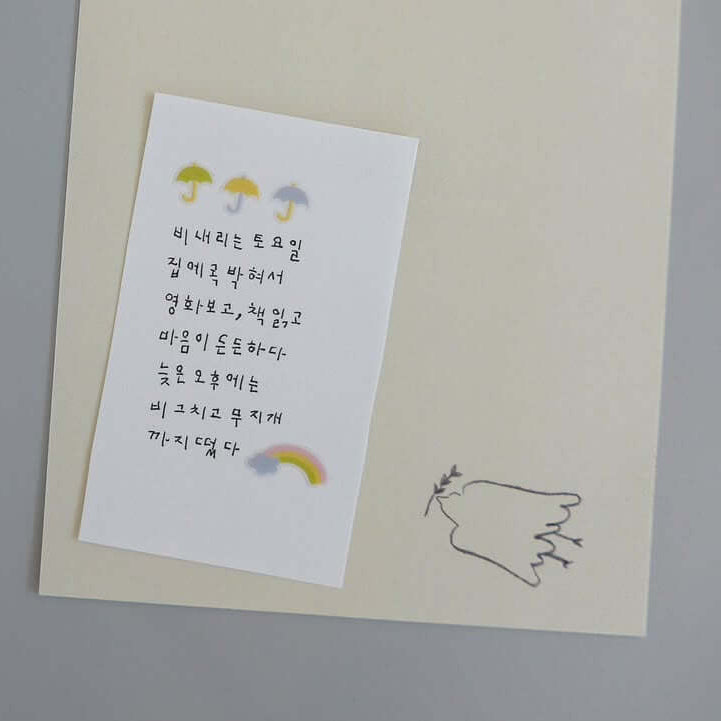 비 내리는 토요일
집에콕 박혀서
영화보고, 책 읽고
마음이 든든하다
늦은 오후에는
비 그치고 무지개
까지 떴다